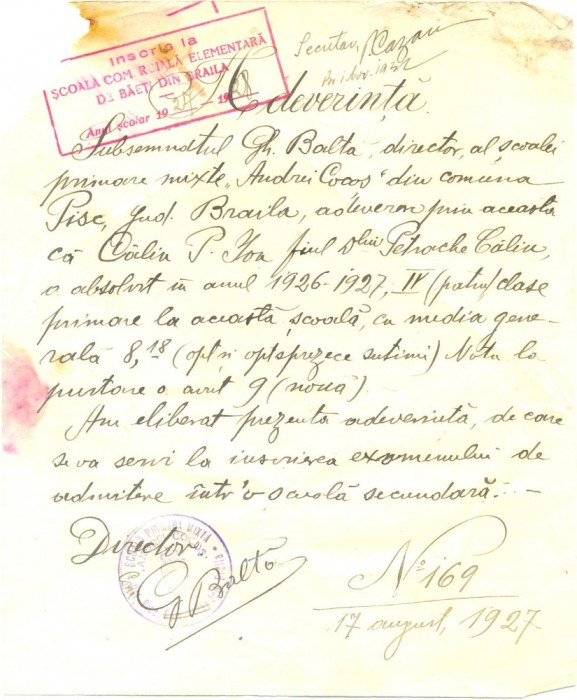 Inscris la
ȘCOALA COMERCIALĂ ELEMENTARĂ
DE BĂEȚI DIN BRAILA
Anul școlar 1927 - 1928
Secretar, J. Cazan
1 Nov. 1927
Adeverință.
Subsemnatul Gh. Balta, director, al școalei
primare mixte „Andrei Cocoș" din comuna
Pisc, jud. Braila, adeveresc prin aceasta
că Călin P. Ion fiul Dlui Petrache Călin,
a absolvit în anul 1926-1927, IV (patru) clase
primare la această școală, cu media gene-
rală 8,18 (opt și optsprezece sutimi) Nota la
purtare a avut 9 (nouă).
Am eliberat prezenta adeverință, de care
se va servi la inscrierea examenului de
admitere într'o școală secundară. —
Director
G Balta
ȘCOALA PRIMARĂ MIXTĂ
COCOȘ
No 169
17 august, 1927